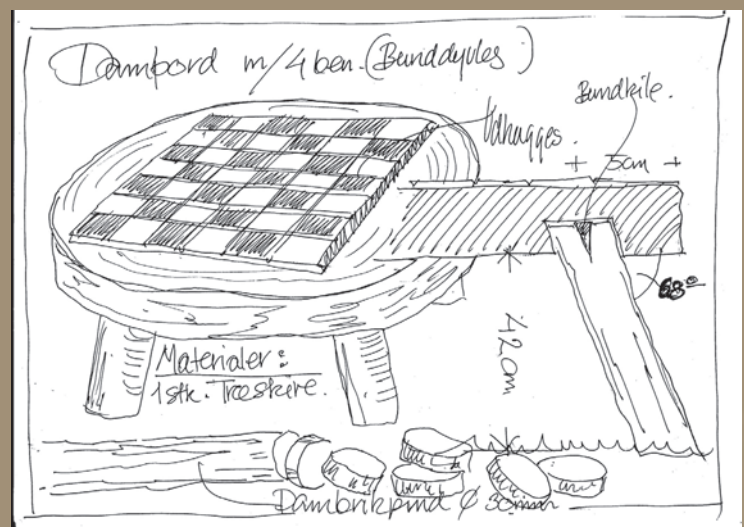 Dambord m/4 ben. (Bunddyvles)
Bundkile.
Udhugges.
+ 5cm +
68°
42cm
Materialer:
1 stk. Træskive.
Dambrikpind Ø 30mm